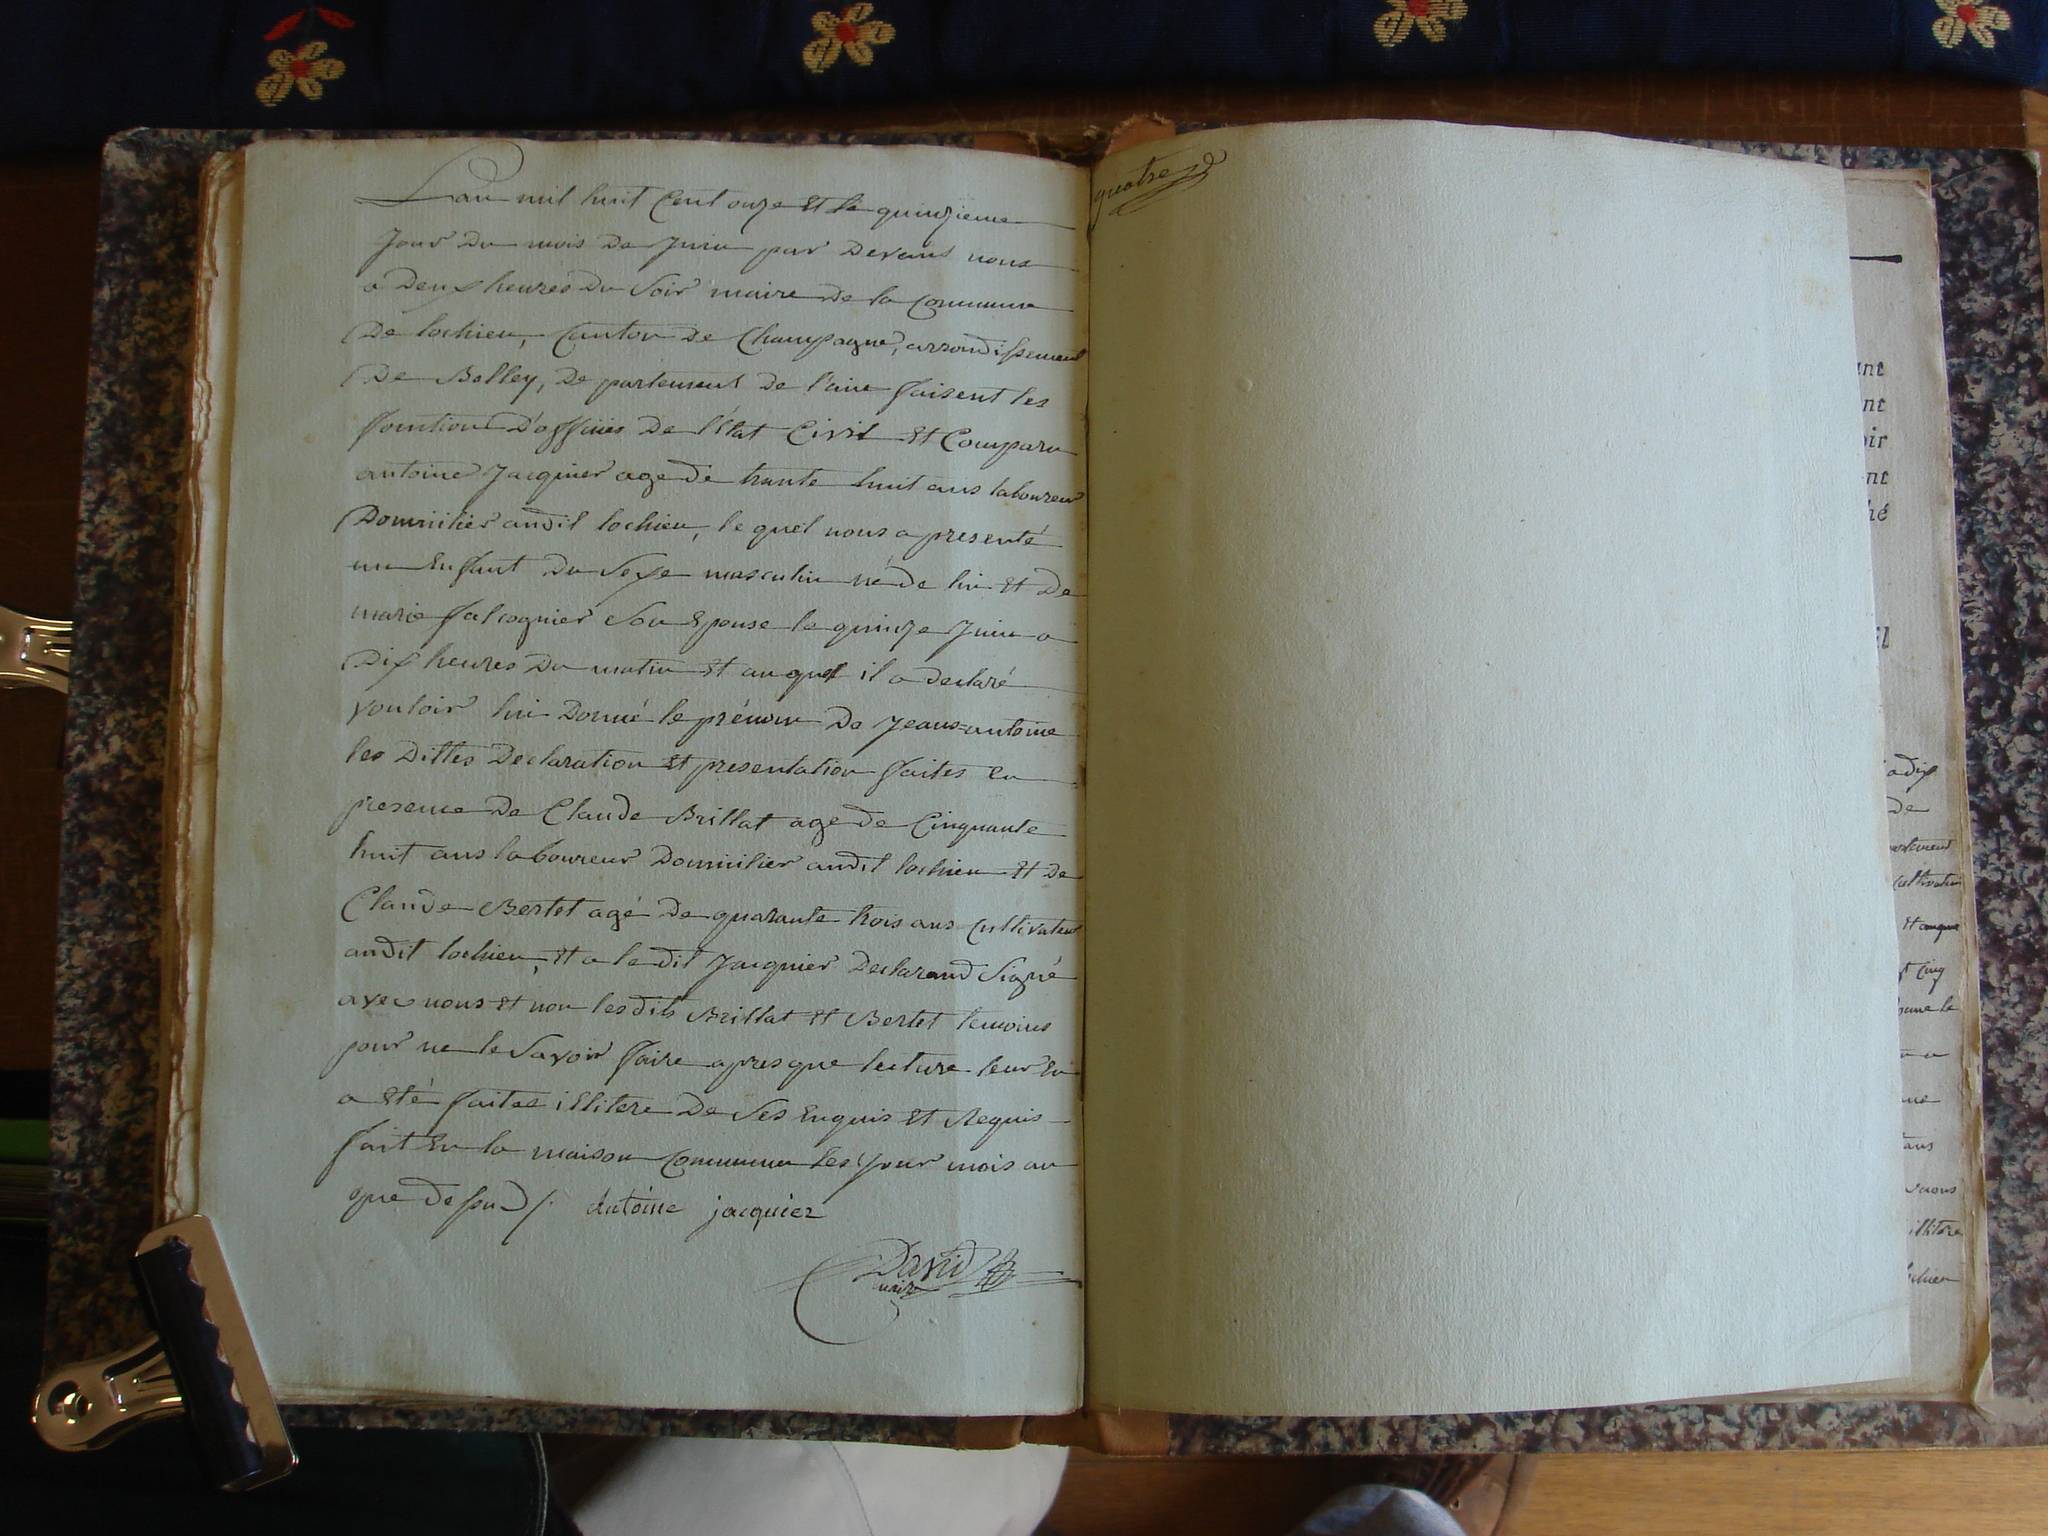 L'an mil huit Cent onze Et le quinzieme
Jour Du mois De Juin par Devant nous
a Deux heures Du Soir maire De la Commune
De lochieu, Canton De Champagne, arrondissement
De Belley, De partement De l'ain faisent les
fonction D'officies De l'état Civil Et Comparu
antoine Jacquier age De trante huit ans laboureur
Domicilier audit lochieu, le quel nous a presenté
un Enfant Du Sexe masculin né De lui Et De
marie falcognier Son Epouse le quinze Juin a
Dix heures Du matin Et auquel il a declaré
vouloir lui Donné le prénom De Jeans=antoine
les Dittes Declaration Et presentation faites En
presence De Claude Brillat age De Cinquante
huit ans laboureur Domicilier audit lochieu Et De
Claude Bertet agé De quarante trois ans Cultivateur
audit lochieu, Et a le dit Jacquier Declarand Signé
avec nous Et non les dits Brillat Et Bertet temoins
pour ne le Savoir faire apres que lecture leur En
a Eté faites illitere De Ses Enquis Et Requis
fait En la maison Commune les Jour mois an
que dessus /. Antoine jacquier
David
maire
quatre
ant
nt
oir
nt
hé
il
a dix
De
cultivateur
Et auque
t cinq
illitére